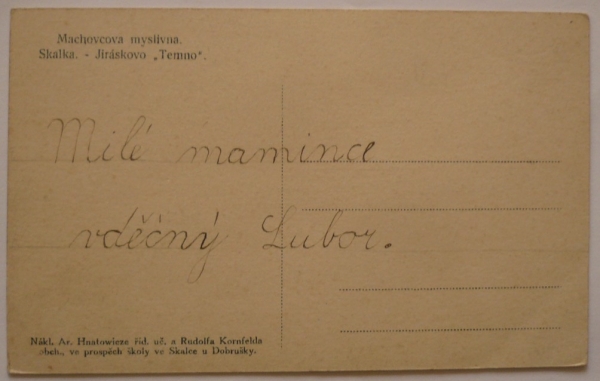 Machovcova myslivna.
Skalka. - Jiráskovo „Temno“.
Milé mamince
vděčný Lubor.
Nákl. Ar. Hnatowicze říd. uč. a Rudolfa Kornfelda
obch., ve prospěch školy ve Skalce u Dobrušky.